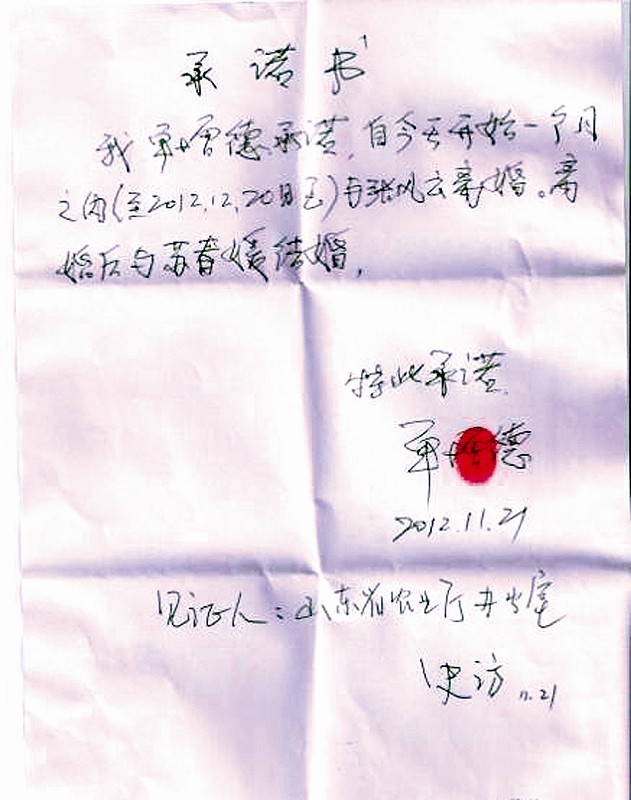 承诺书
我单增德承诺，自今天开始一个月
之内(至2012.12.20日至)与张风云离婚。离
婚后与苏春媛结婚，
特此承诺
单增德
2012.11.21
见证人：山东省农业厅办公室
史访 11.21